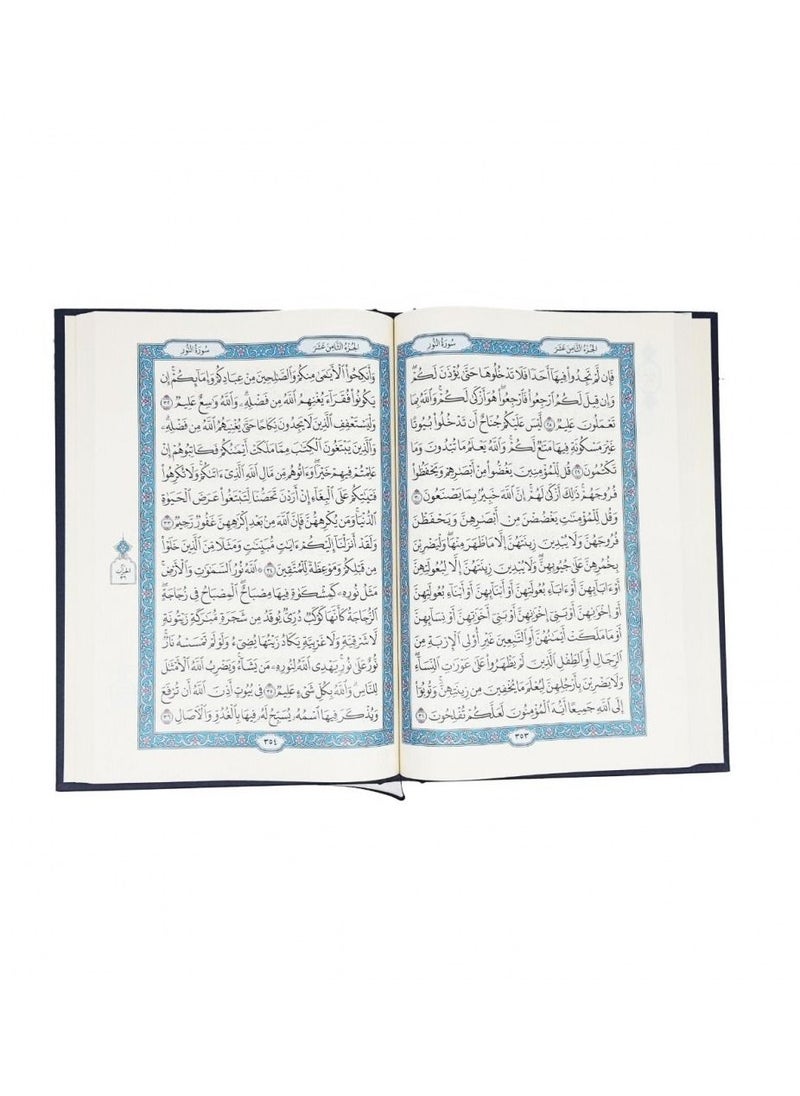 الجزء الثامن عشر
سورة النور
فَإِن لَّمْ تَجِدُوا۟ فِيهَآ أَحَدًا فَلَا تَدْخُلُوهَا حَتَّىٰ يُؤْذَنَ لَكُمْ ۖ
وَإِن قِيلَ لَكُمُ ٱرْجِعُوا۟ فَٱرْجِعُوا۟ ۖ هُوَ أَزْكَىٰ لَكُمْ ۚ وَٱللَّهُ بِمَا
تَعْمَلُونَ عَلِيمٌ ﴿٢٨﴾ لَّيْسَ عَلَيْكُمْ جُنَاحٌ أَن تَدْخُلُوا۟ بُيُوتًا
غَيْرَ مَسْكُونَةٍ فِيهَا مَتَٰعٌ لَّكُمْ ۚ وَٱللَّهُ يَعْلَمُ مَا تُبْدُونَ وَمَا
تَكْتُمُونَ ﴿٢٩﴾ قُل لِّلْمُؤْمِنِينَ يَغُضُّوا۟ مِنْ أَبْصَٰرِهِمْ وَيَحْفَظُوا۟
فُرُوجَهُمْ ۚ ذَٰلِكَ أَزْكَىٰ لَهُمْ ۗ إِنَّ ٱللَّهَ خَبِيرٌۢ بِمَا يَصْنَعُونَ ﴿٣٠﴾
وَقُل لِّلْمُؤْمِنَٰتِ يَغْضُضْنَ مِنْ أَبْصَٰرِهِنَّ وَيَحْفَظْنَ
فُرُوجَهُنَّ وَلَا يُبْدِينَ زِينَتَهُنَّ إِلَّا مَا ظَهَرَ مِنْهَا ۖ وَلْيَضْرِبْنَ
بِخُمُرِهِنَّ عَلَىٰ جُيُوبِهِنَّ ۖ وَلَا يُبْدِينَ زِينَتَهُنَّ إِلَّا لِبُعُولَتِهِنَّ
أَوْ ءَابَآئِهِنَّ أَوْ ءَابَآءِ بُعُولَتِهِنَّ أَوْ أَبْنَآئِهِنَّ أَوْ أَبْنَآءِ بُعُولَتِهِنَّ
أَوْ إِخْوَٰنِهِنَّ أَوْ بَنِىٓ إِخْوَٰنِهِنَّ أَوْ بَنِىٓ أَخَوَٰتِهِنَّ أَوْ نِسَآئِهِنَّ
أَوْ مَا مَلَكَتْ أَيْمَٰنُهُنَّ أَوِ ٱلتَّٰبِعِينَ غَيْرِ أُو۟لِى ٱلْإِرْبَةِ مِنَ
ٱلرِّجَالِ أَوِ ٱلطِّفْلِ ٱلَّذِينَ لَمْ يَظْهَرُوا۟ عَلَىٰ عَوْرَٰتِ ٱلنِّسَآءِ ۖ
وَلَا يَضْرِبْنَ بِأَرْجُلِهِنَّ لِيُعْلَمَ مَا يُخْفِينَ مِن زِينَتِهِنَّ ۚ وَتُوبُوٓا۟
إِلَى ٱللَّهِ جَمِيعًا أَيُّهَ ٱلْمُؤْمِنُونَ لَعَلَّكُمْ تُفْلِحُونَ ﴿٣١﴾
٣٥٣
الجزء الثامن عشر
سورة النور
وَأَنكِحُوا۟ ٱلْأَيَٰمَىٰ مِنكُمْ وَٱلصَّٰلِحِينَ مِنْ عِبَادِكُمْ وَإِمَآئِكُمْ ۚ إِن
يَكُونُوا۟ فُقَرَآءَ يُغْنِهِمُ ٱللَّهُ مِن فَضْلِهِۦ ۗ وَٱللَّهُ وَٰسِعٌ عَلِيمٌ ﴿٣٢﴾
وَلْيَسْتَعْفِفِ ٱلَّذِينَ لَا يَجِدُونَ نِكَاحًا حَتَّىٰ يُغْنِيَهُمُ ٱللَّهُ مِن فَضْلِهِۦ ۗ
وَٱلَّذِينَ يَبْتَغُونَ ٱلْكِتَٰبَ مِمَّا مَلَكَتْ أَيْمَٰنُكُمْ فَكَاتِبُوهُمْ إِنْ
عَلِمْتُمْ فِيهِمْ خَيْرًا ۖ وَءَاتُوهُم مِّن مَّالِ ٱللَّهِ ٱلَّذِىٓ ءَاتَىٰكُمْ ۚ وَلَا تُكْرِهُوا۟
فَتَيَٰتِكُمْ عَلَى ٱلْبِغَآءِ إِنْ أَرَدْنَ تَحَصُّنًا لِّتَبْتَغُوا۟ عَرَضَ ٱلْحَيَوٰةِ
ٱلدُّنْيَا ۚ وَمَن يُكْرِههُّنَّ فَإِنَّ ٱللَّهَ مِنۢ بَعْدِ إِكْرَٰهِهِنَّ غَفُورٌ رَّحِيمٌ ﴿٣٣﴾
وَلَقَدْ أَنزَلْنَآ إِلَيْكُمْ ءَايَٰتٍ مُّبَيِّنَٰتٍ وَمَثَلًا مِّنَ ٱلَّذِينَ خَلَوْا۟
مِن قَبْلِكُمْ وَمَوْعِظَةً لِّلْمُتَّقِينَ ﴿٣٤﴾ ۞ ٱللَّهُ نُورُ ٱلسَّمَٰوَٰتِ وَٱلْأَرْضِ ۚ
مَثَلُ نُورِهِۦ كَمِشْكَوٰةٍ فِيهَا مِصْبَاحٌ ۖ ٱلْمِصْبَاحُ فِى زُجَاجَةٍ ۖ
ٱلزُّجَاجَةُ كَأَنَّهَا كَوْكَبٌ دُرِّىٌّ يُوقَدُ مِن شَجَرَةٍ مُّبَٰرَكَةٍ زَيْتُونَةٍ
لَّا شَرْقِيَّةٍ وَلَا غَرْبِيَّةٍ يَكَادُ زَيْتُهَا يُضِىٓءُ وَلَوْ لَمْ تَمْسَسْهُ نَارٌ ۚ
نُّورٌ عَلَىٰ نُورٍ ۗ يَهْدِى ٱللَّهُ لِنُورِهِۦ مَن يَشَآءُ ۚ وَيَضْرِبُ ٱللَّهُ ٱلْأَمْثَٰلَ
لِلنَّاسِ ۗ وَٱللَّهُ بِكُلِّ شَىْءٍ عَلِيمٌ ﴿٣٥﴾ فِى بُيُوتٍ أَذِنَ ٱللَّهُ أَن تُرْفَعَ
وَيُذْكَرَ فِيهَا ٱسْمُهُۥ يُسَبِّحُ لَهُۥ فِيهَا بِٱلْغُدُوِّ وَٱلْءَاصَالِ ﴿٣٦﴾
٣٥٤